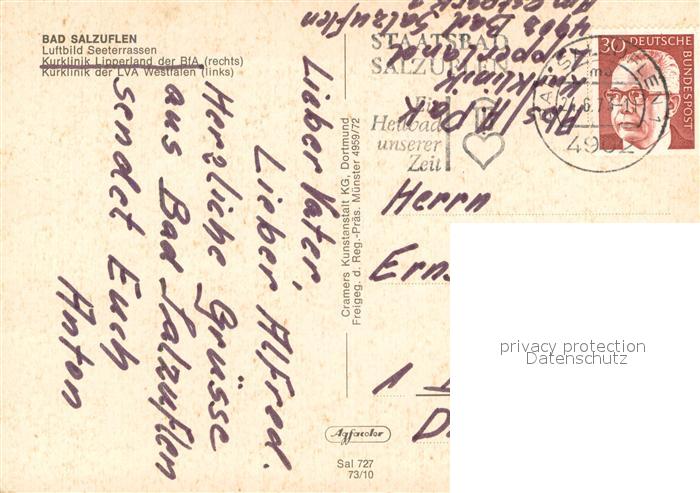 BAD SALZUFLEN
Luftbild Seeterrassen
Kurklinik Lipperland der BfA (rechts)
Kurklinik der LVA Westfalen (links)
Lieber Vater,
Lieber Alfred.
Herzliche Grüsse
aus Bad Salzuflen
sendet Euch
Anton
Cramers Kunstanstalt KG, Dortmund
Freigeg. d. Reg.-Präs. Münster 4959/72
Agfacolor
Sal 727
73/10
STAATSBAD
SALZUFLEN
Ein
Heilbad
unserer
Zeit
4902
30 DEUTSCHE
BUNDESPOST
Kurklinik
Lipperland
4902 Bad Salzuflen
Herrn
1
privacy protection
Datenschutz